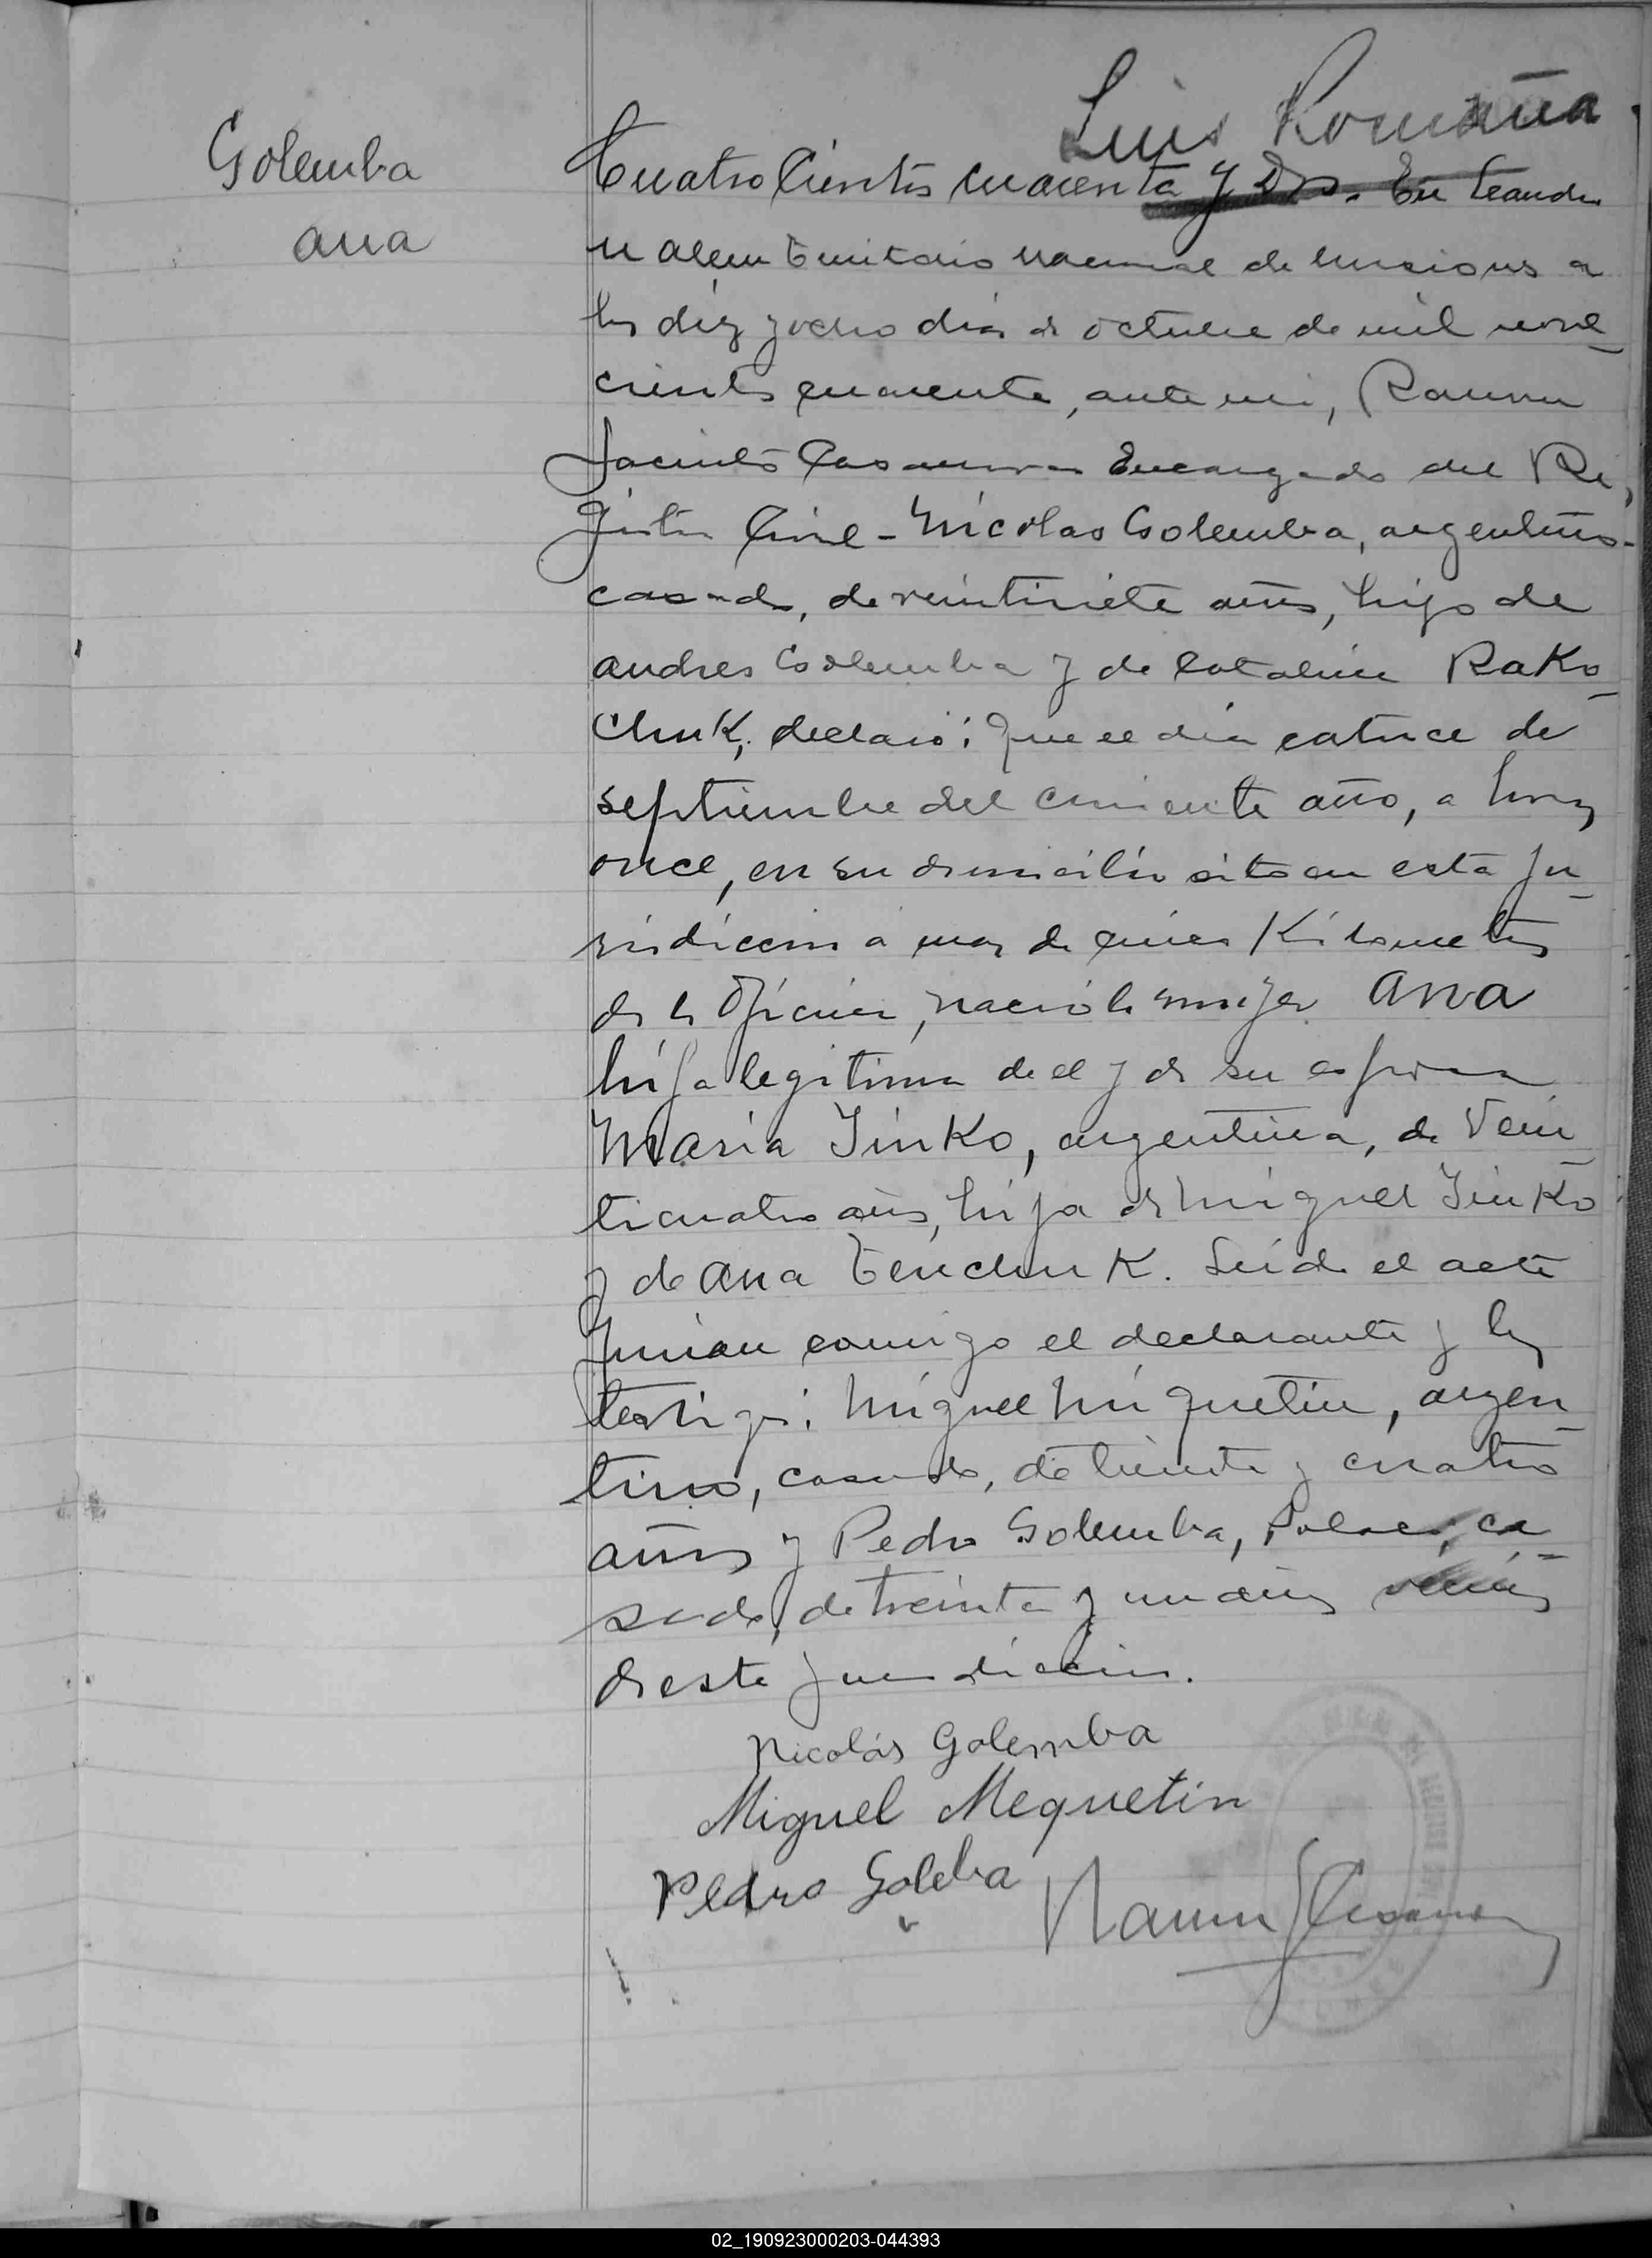 Luis Romaña
Golemba
Ana
Cuatrocientos cuarenta y dos. En Leandro
N Alem Territorio Nacional de Misiones a
los diez y ocho dias de octubre de mil nove_
cientos cuarenta, ante mi, Ramon
Jacinto Casanova Encargado del Re,
gistro Civil - Nicolas Golemba, argentino.
casado, de veintisiete años, hijo de
Andres Golemba y de Catalina Rako_
chuk, declaró: Que el día catorce de
septiembre del corriente año, a horas
once, en su domicilio sito en esta ju_
risdiccion a mas de cinco Kilometros
de la Oficina, nació la mujer Ana
hija legitima de el y de su esposa
Maria Iinko, argentina, de Vein_
ticuatro años, hija de Miguel Iinko
y de Ana Tenchuk. Leida el acta
firman conmigo el declarante y los
testigos: Miguel Miquetin, argen_
tino, casado, de treinta y cuatro
años y Pedro Golemba, Polaco, ca_
sado, de treinta y un años vecinos
de esta jurisdiccion.
Nicolás Golemba
Miguel Mequetin
Pedro Goleba
Ramon J Casanova
02_190923000203-044393